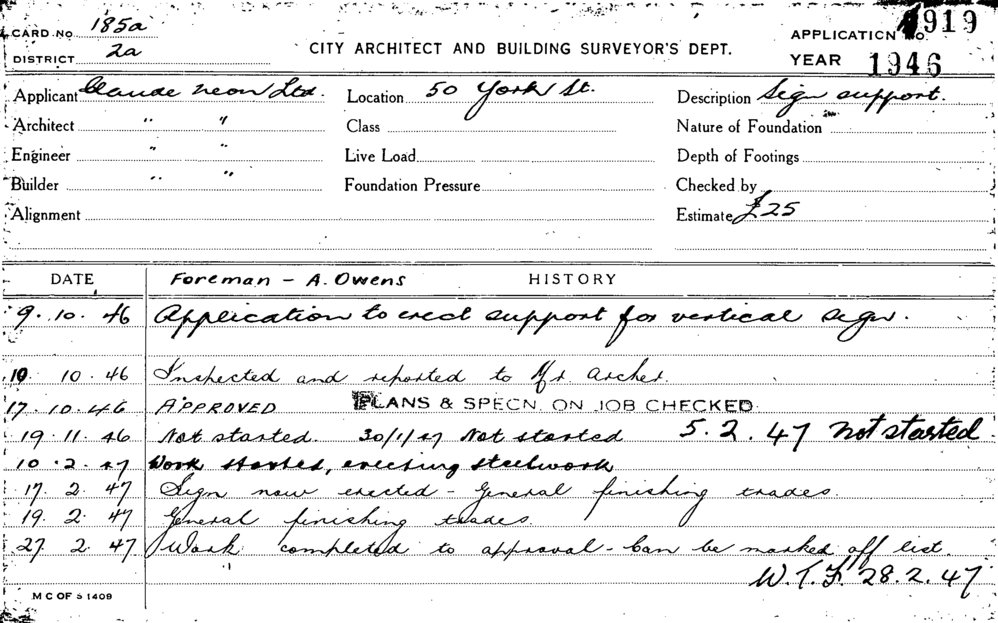 CARD NO 185a
DISTRICT 2a
CITY ARCHITECT AND BUILDING SURVEYOR'S DEPT.
APPLICATION No. 919
YEAR 1946
Applicant Claude Neon Ltd. Location 50 York St. Description Sign support.
Architect " " Class Nature of Foundation
Engineer " " Live Load Depth of Footings
Builder " " Foundation Pressure Checked by
Alignment Estimate £25
DATE Foreman - A. Owens HISTORY
9. 10. 46 Application to erect support for vertical sign.
10. 10. 46 Inspected and reported to Mr. Archer.
17. 10. 46 APPROVED PLANS & SPECN. ON JOB CHECKED
19. 11. 46 Not started. 30/1/47 Not started 5. 2. 47 Not started
10. 2. 47 Work started, erecting steelwork
17. 2. 47 Sign now erected - General finishing trades.
19. 2. 47 General finishing trades.
27. 2. 47 Work completed to approval - Can be marked off list.
W.T.F. 28.2.47
M C OF S 1409